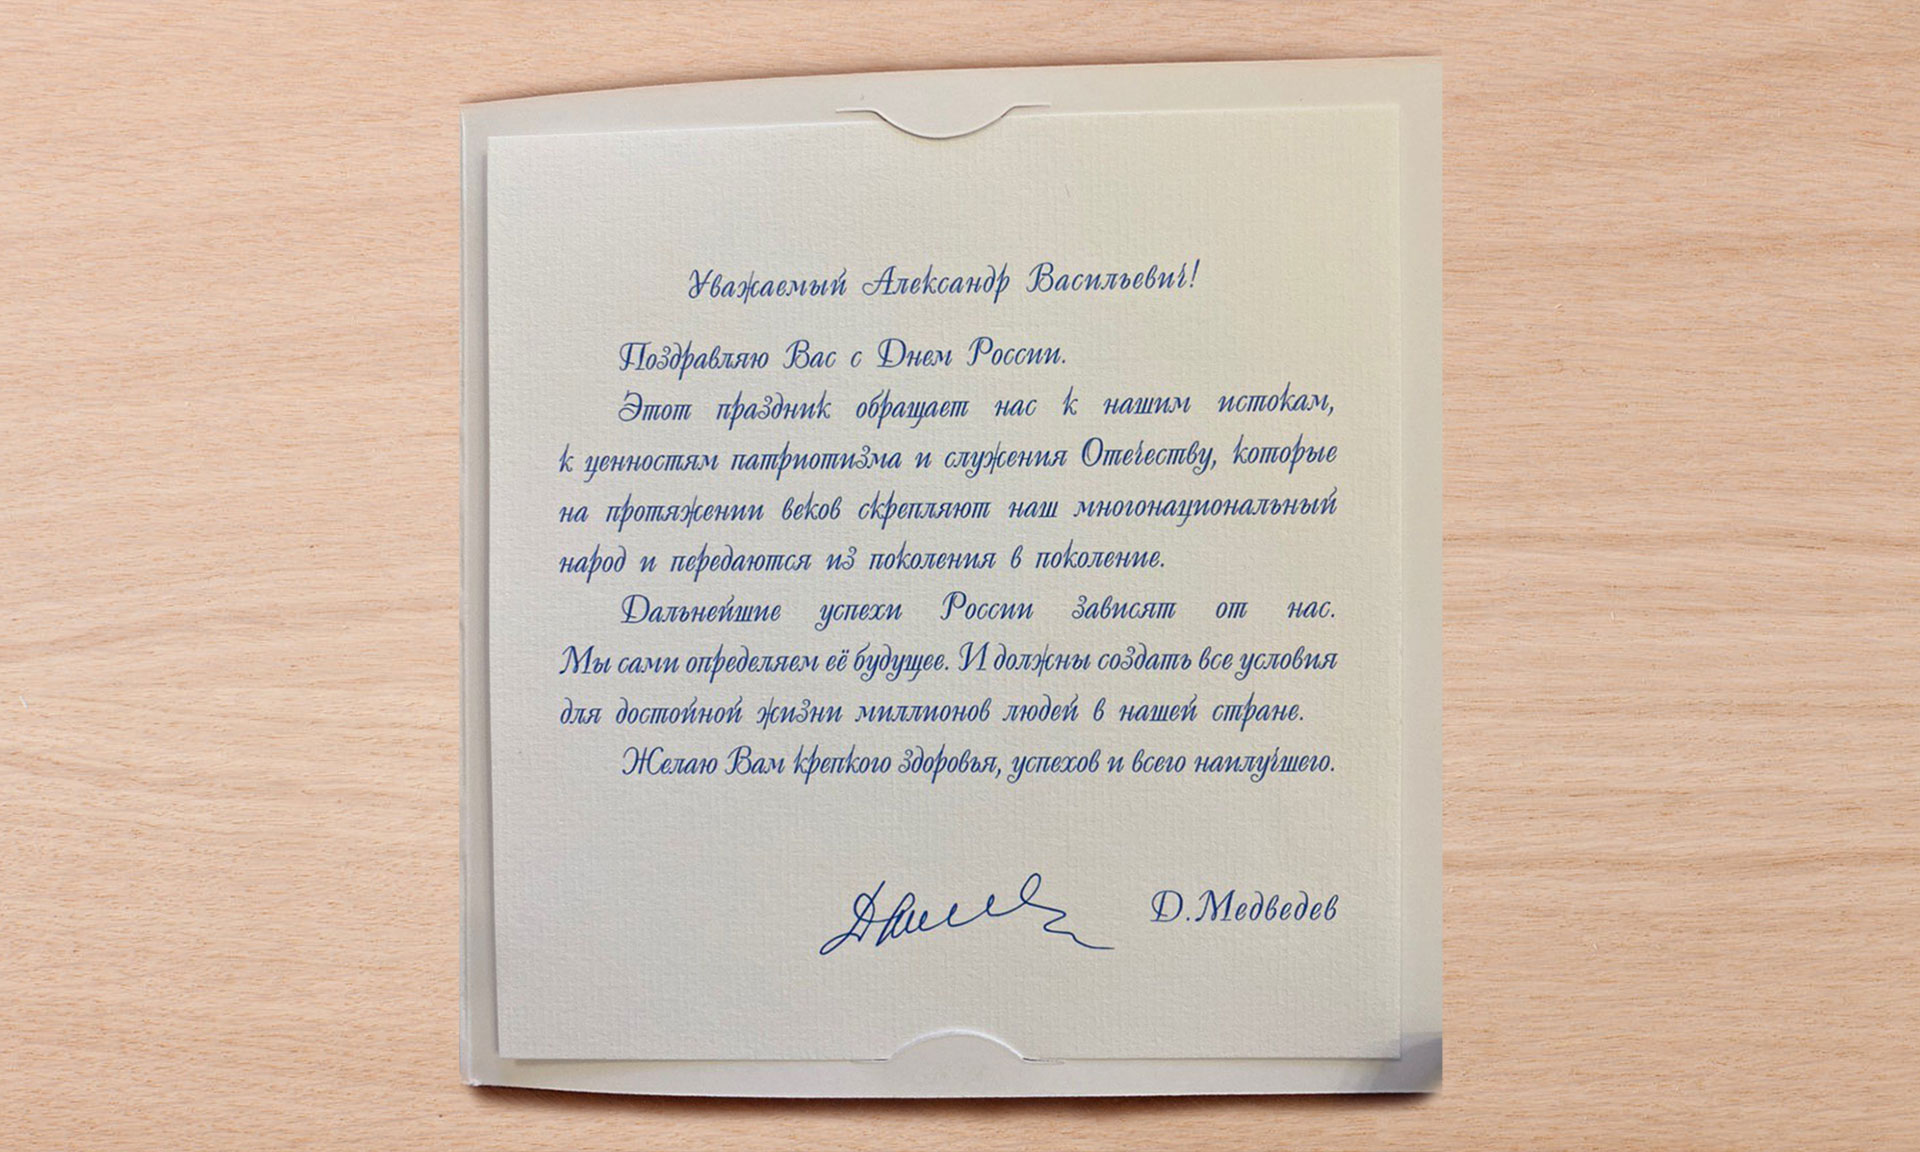 Уважаемый Александр Васильевич!
Поздравляю Вас с Днем России.
Этот праздник обращает нас к нашим истокам,
к ценностям патриотизма и служения Отечеству, которые
на протяжении веков скрепляют наш многонациональный
народ и передаются из поколения в поколение.
Дальнейшие успехи России зависят от нас.
Мы сами определяем её будущее. И должны создать все условия
для достойной жизни миллионов людей в нашей стране.
Желаю Вам крепкого здоровья, успехов и всего наилучшего.
Д.Медведев